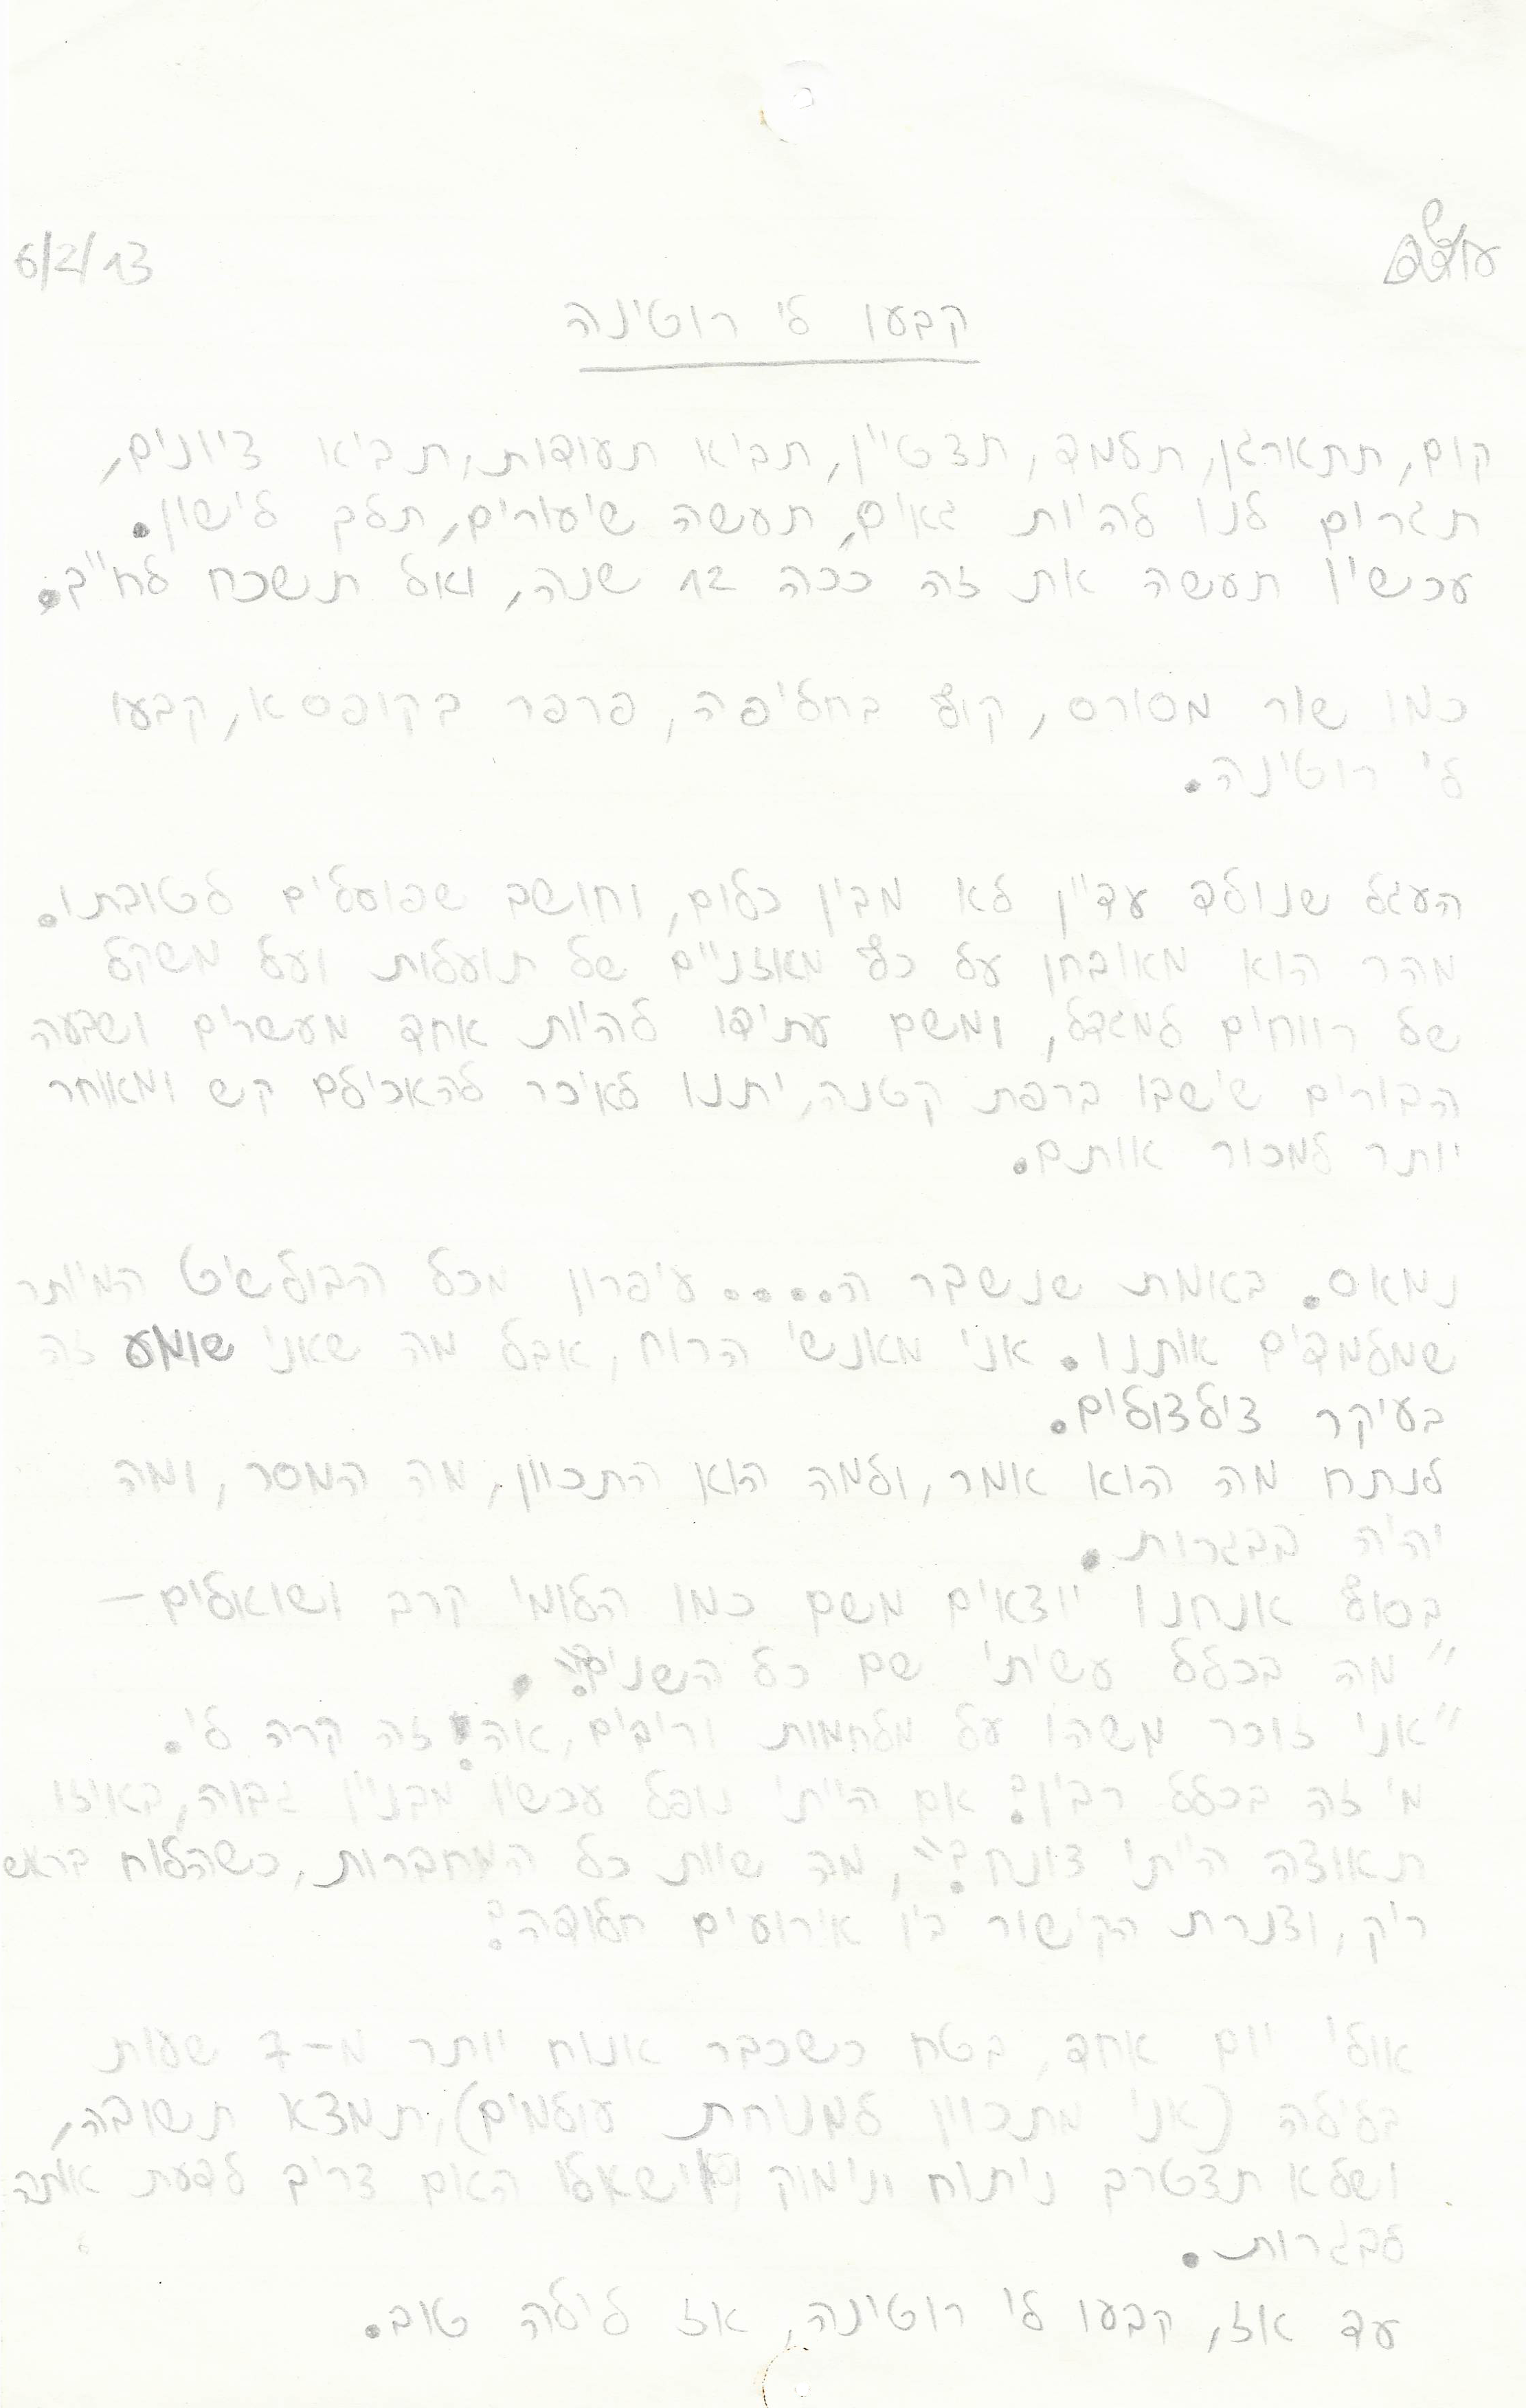 6/2/13
קבעו לי רוטינה
קום, תתארגן, תלמד, תצטיין, תביא תעודות, תביא ציונים,
תגרום לנו להיות גאים, תעשה שיעורים, תלך לישון.
עכשיו תעשה את זה ככה 12 שנה, ואל תשכח לח"ב.
כמו שור מסורס, קוף בחליפה, פרפר בקופסא, קבעו
לי רוטינה.
העגל שנולד עדיין לא מבין כלום, וחושב שפועלים לטובתו.
מהר הוא מאובחן על כף מאזניים של תועלות ועל משקל
של רווחים למגדל, ומשם עתידו להיות אחד מעשרים ושבעה
הבורים שישבו ברפת קטנה, יתנו לאיכר להאכילם קש ומאוחר
יותר למכור אותם.
נמאס. באמת שנשבר ה.... עיפרון מכל הבולשיט המיותר
שמלמדים אותנו. אני מאנשי הרוח, אבל מה שאני שומע זה
בעיקר צילצולים.
לנתח מה הוא אמר, ולמה הוא התכוון, מה המסר, ומה
יהיה בבגרות.
בסוף אנחנו יוצאים משם כמו הלומי קרב ושואלים –
"מה בכלל עשיתי שם כל השנים?".
"אני זוכר משהו על מלחמות וריבים, אה! זה קרה לי.
מי זה בכלל רבין? אם הייתי נופל עכשיו מבניין גבוה, באיזו
תאוצה הייתי צונח?", מה שוות כל המחברות, כשהלוח בראש
ריק, וצנרת הקישור בין אירועים חלודה?
אולי יום אחד, בטח כשכבר אנוח יותר מ-7 שעות
בלילה (אני מתכוון למנוחת עולמים), תמצא תשובה,
ושלא תצטרך ניתוח ונימוק ושאלו האם צריך לדעת אותה
לבגרות.
עד אז, קבעו לי רוטינה, אז לילה טוב.